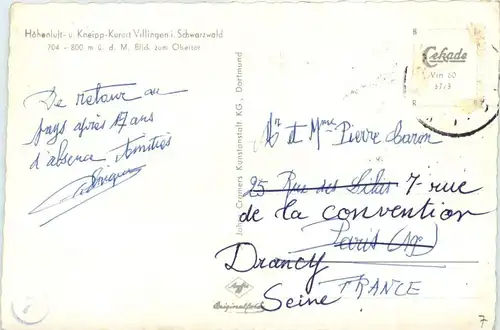 Höhenluft- u. Kneipp-Kurort Villingen i. Schwarzwald
704 - 800 m ü. d. M. Blick zum Obertor
De retour au
pays après 17 ans
d'absence Amitiés
Johs. Cramers Kunstanstalt KG., Dortmund
Cekade
Vin 60
Mr et Mme Pierre Caron
25 Rue des Lilas 7-rue
de la convention
Paris
Drancy
Seine FRANCE
Agfa
Originalfoto
7